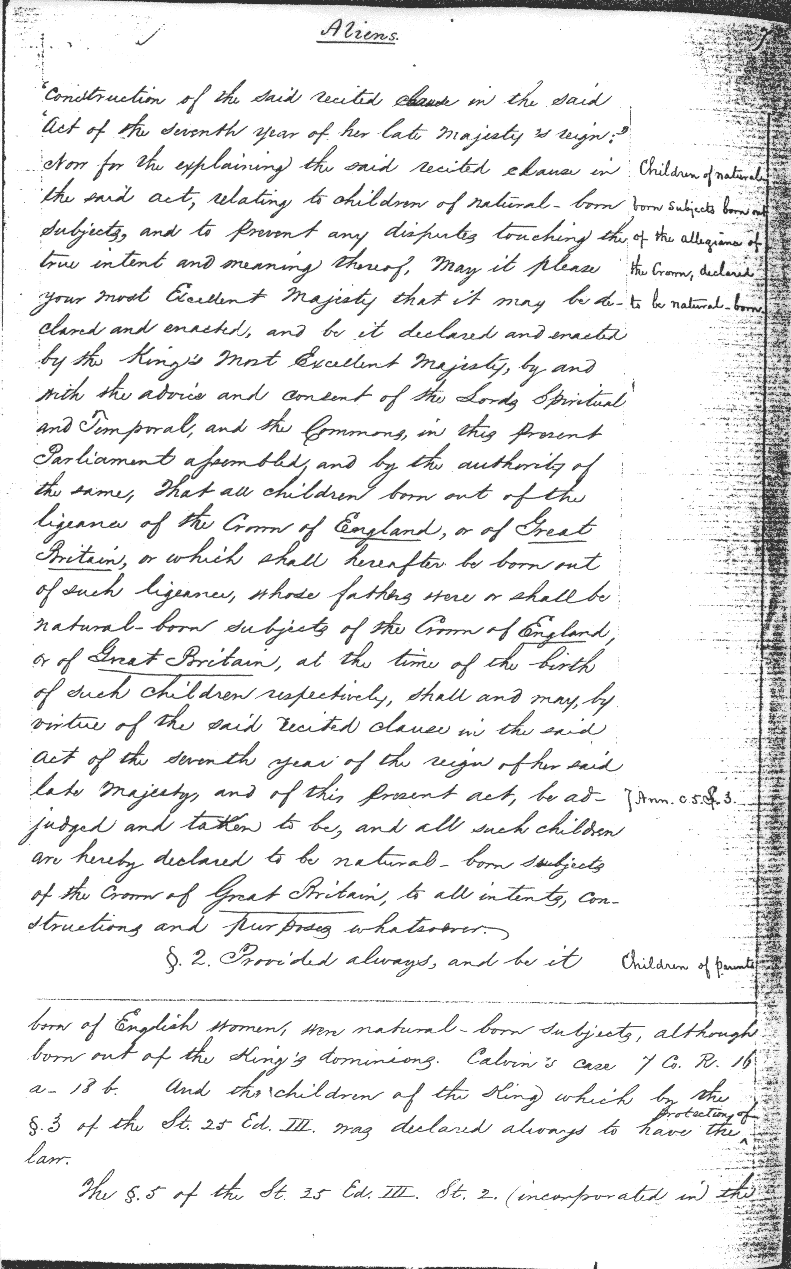 Aliens.
7
"Construction of the said recited clause in the said
"Act of the seventh year of her late Majesty's reign:"
Now for the explaining the said recited clause in
the said act, relating to children of natural-born
subjects, and to prevent any disputes touching the
true intent and meaning thereof, May it please
your most Excellent Majesty that it may be de-
clared and enacted, and be it declared and enacted
by the King's Most Excellent Majesty, by and
with the advice and consent of the Lords Spiritual
and Temporal, and the Commons, in this present
Parliament assembled, and by the authority of
the same, That all children born out of the
ligeance of the Crown of England, or of Great
Britain, or which shall hereafter be born out
of such ligeance, whose fathers were or shall be
natural-born subjects of the Crown of England,
or of Great Britain, at the time of the birth
of such children respectively, shall and may, by
virtue of the said recited clause in the said
act of the seventh year of the reign of her said
late Majesty, and of this present act, be ad-
judged and taken to be, and all such children
are hereby declared to be natural-born subjects
of the Crown of Great Britain, to all intents, con-
structions and purposes whatsoever.
§. 2. Provided always, and be it
Children of natural-
born subjects born out
of the allegiance of
the Crown, declared
to be natural-born
7 Ann. c. 5. §. 3.
Children of parents
born of English women, were natural-born subjects, although
born out of the King's dominions. Calvin's case 7 Co. R. 16
a-18 b. And the children of the King which by the
§. 3 of the St. 25 Ed. III. was declared always to have the protection of
law.
The §. 5 of the St. 25 Ed. III. St. 2. (incorporated in the